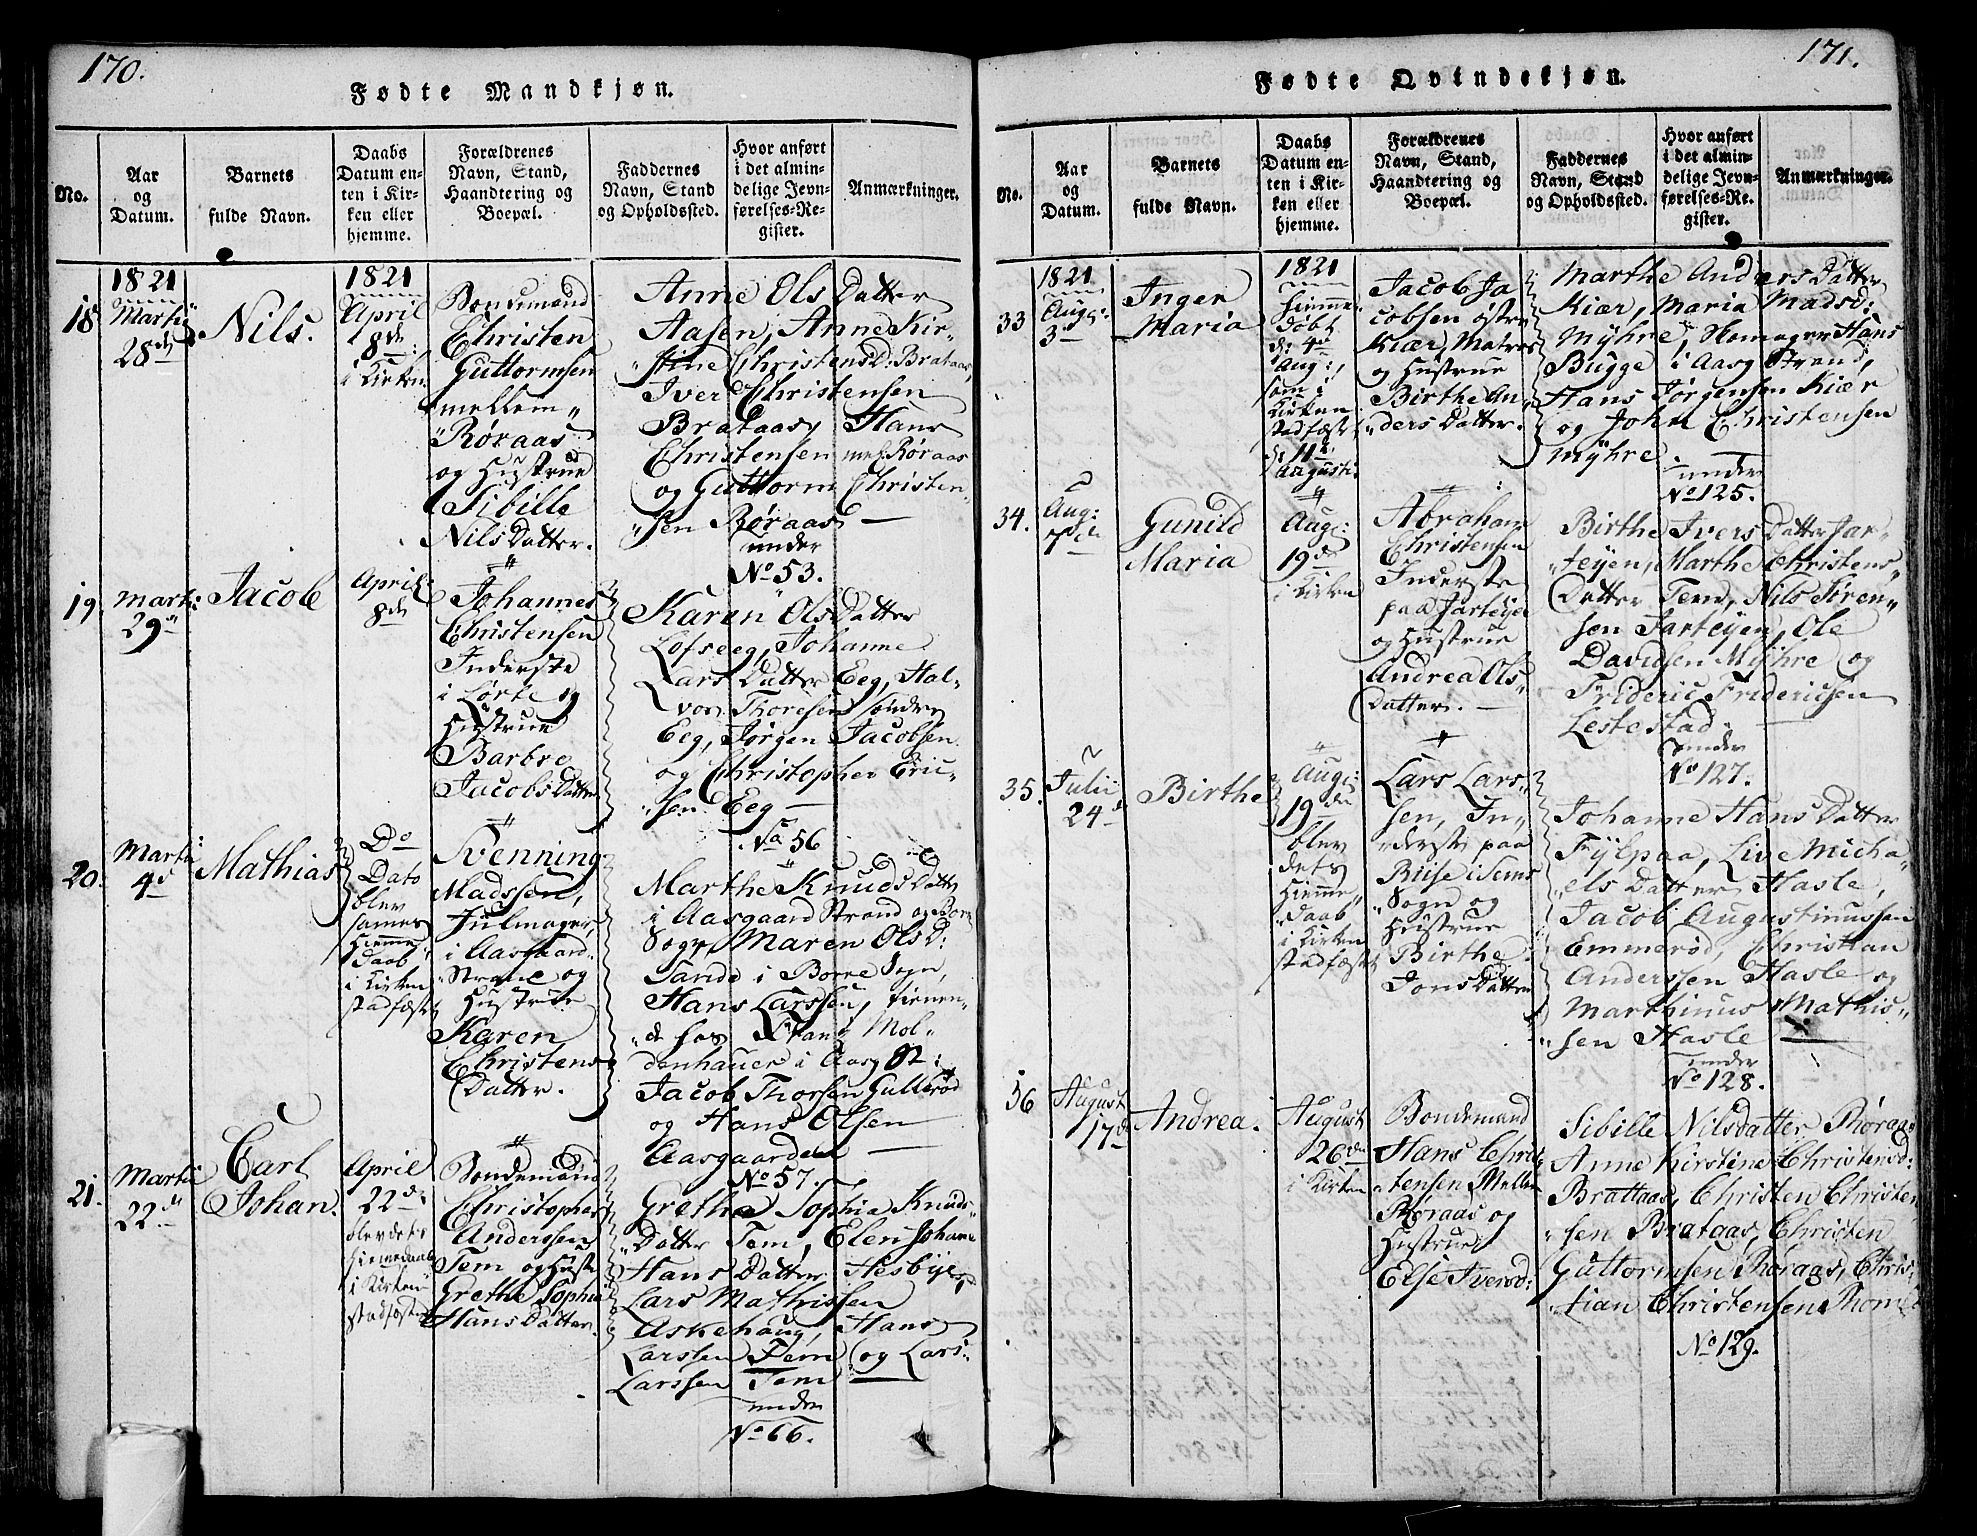 170.
Fødte Mandkjøn.
No.
Aar
og
Datum.
Barnets
fulde Navn.
Daabs
Datum en-
ten i Kir-
ken eller
hjemme.
Forældrenes
Navn, Stand,
Haandtering og
Boepæl.
Faddernes
Navn, Stand
og Opholdssted.
Hvor anført
i det almin-
delige Jevn-
førelses-Re-
gister.
Anmærkninger.
18
1821
Martii
28de
Nils.
1821
April
8de:
i Kirken
Bondemand
Christen
Guttormsen
mellem
Røraas
og Hustrue
Sibille
Nils Datter.
Anne Ols Datter
Aasen, Anne Kir-
stine Christens D: Brataas,
Iver Christensen
Brataas, Hans
Christensen mel: Røraas
og Guttorm Christen-
sen Røraas —
under
No 53.
19.
Martii
29de
Jacob
April
8de
Johannes
Christensen
Inderste
i Lørte og
Hustrue
Barbre
Jacobs Datter
Karen Ols Datter
Lofseeg, Johanne
Lars Datter Eeg, Hal-
vor Thoresen søndre
Eeg, Jørgen Jacobsen
og Christopher Eric-
sen Eeg —
No 56
20.
Martii
4de
Mathias
Do
Dato
blev
sammes
Hiemme
daab
i Kirken
stadfæst
Svenning
Madssen,
Julmager
i Aasgaard
Strand og
Hustrue
Karen
Christens
Datter.
Marthe Knuds Datter
i Aasgaard Strand og Borre
Sogn, Maren Ols D:
Sande i Borre Sogn,
Hans Larssen, tienen-
de hos Frantz Mol-
denhauer i Aasg St:
Jacob Thorsen Gullerød
og Hans Olsen
Aasgaarden —
No 57.
21.
Martii
22de
Carl
Johan.
April
22de
blev dets
Hiemmedaab
i Kirken
stadfæstet
Bondemand
Christopher
Anderssen
Tem og Hust:
Grethe Sophia
Hans Datter.
Grethe Sophia Knuds
Datter Tem, Elen Johan-
Hans Datter Hesbye,
Lars Mathissen
Askehaug, Hans
Larssen Tem og Lars
Larssen Tem
under
No 66.
171.
Fødte Qvindekjøn.
No.
Aar
og
Datum.
Barnets
fulde Navn.
Daabs
Datum en-
ten i Kir-
ken eller
hjemme.
Forældrenes
Navn, Stand,
Haandtering og
Boepæl.
Faddernes
Navn, Stand
og Opholdssted.
Hvor anført
i det almin-
delige Jevn-
førelses-Re-
gister.
Anmærkninger.
33
1821
Aug:
3de
Inger
Maria
1821
hiemme
døbt
d: 4de
Aug:,
som i
Kirken
stadfæst
d: 11te
Augusti:
Jacob Ja
cobsen østre
Kiær, Matros
og Hustrue
Birthe An-
ders Datter.
Marthe Anders Datter
Kiær, Maria Madsd:
Myhre, Skomager Hans
Bugge i Aasg Strand,
Hans Jørgensen Kiær
og John Christensen
Myhre
under
No 125.
34.
Aug:
7de
Gunild
Maria
Aug:
19de
i Kirken
Abraham
Christensen
Inderste
paa Jarteyen
og Hustrue
Andrea Ols
Datter. —
Birthe Ivers Datter Jar-
teyen, Marthe Christens
Datter Tem, Nils Søren-
sen Jarteyen, Ole
Davidsen Myhre og
Frideric Fridericsen
Lestestad —
under
No 127.
35.
Julii
24de
Birthe
Aug:
19de
blev
dets
Hiemme
daab
i Kirken
stadfæst
Lars Lars
sen, In-
derste paa
Biise i Sems
Sogn og
Hustrue
Birthe
Jons Datter
Johanne Hans Datter
Fylpaa, Live Micha-
els Datter Hasle,
Jacob Augustinussen
Emmerød, Christian
Anderssen Hasle og
Marthinus Mathis-
sen Hasle
under
No 128.
36
August
17de
Andrea.
August
26de
i Kirken
Bondemand
Hans Chris
tensen Mellem
Røraas og
Hustrue
Else Iversd:
Sibille Nilsdatter Røraas
Anne Kirstine Christensd:
Brattaas, Christen Christen
sen Brataas, Christen
Guttormsen Røraas, Chris-
tian Christensen
No 129.